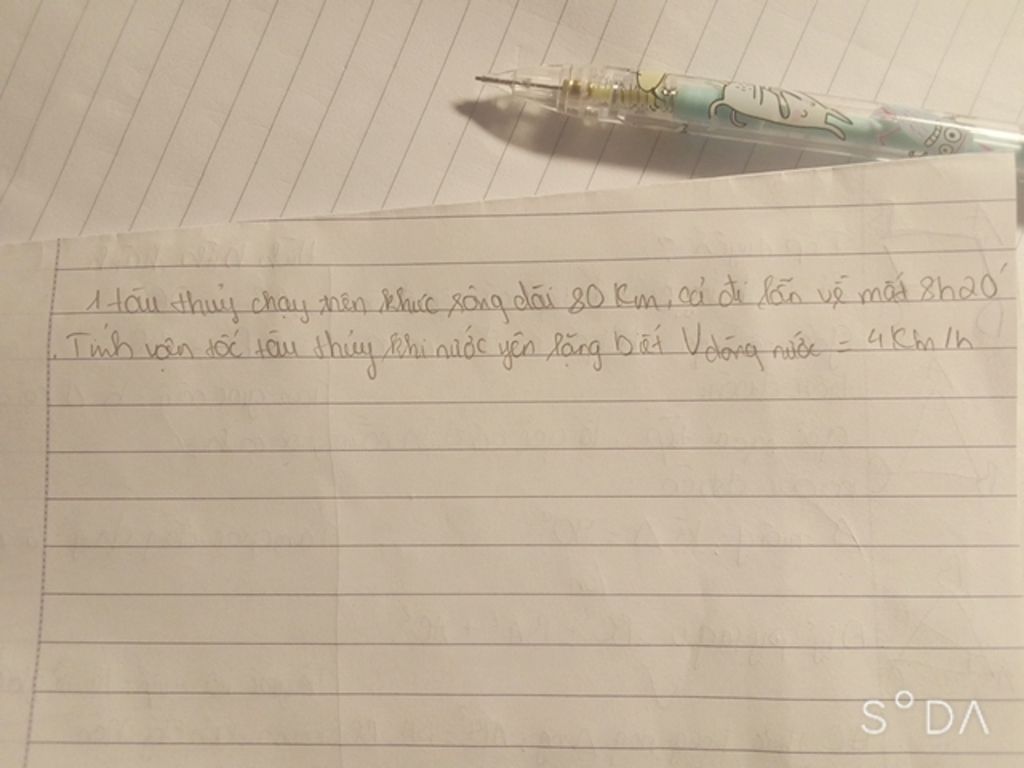 1 tàu thuỷ chạy trên khúc sông dài 80 Km, cả đi lẫn về mất 8h20'
Tính vận tốc tàu thủy khi nước yên lặng biết Vdòng nước = 4Km/h
S°DA